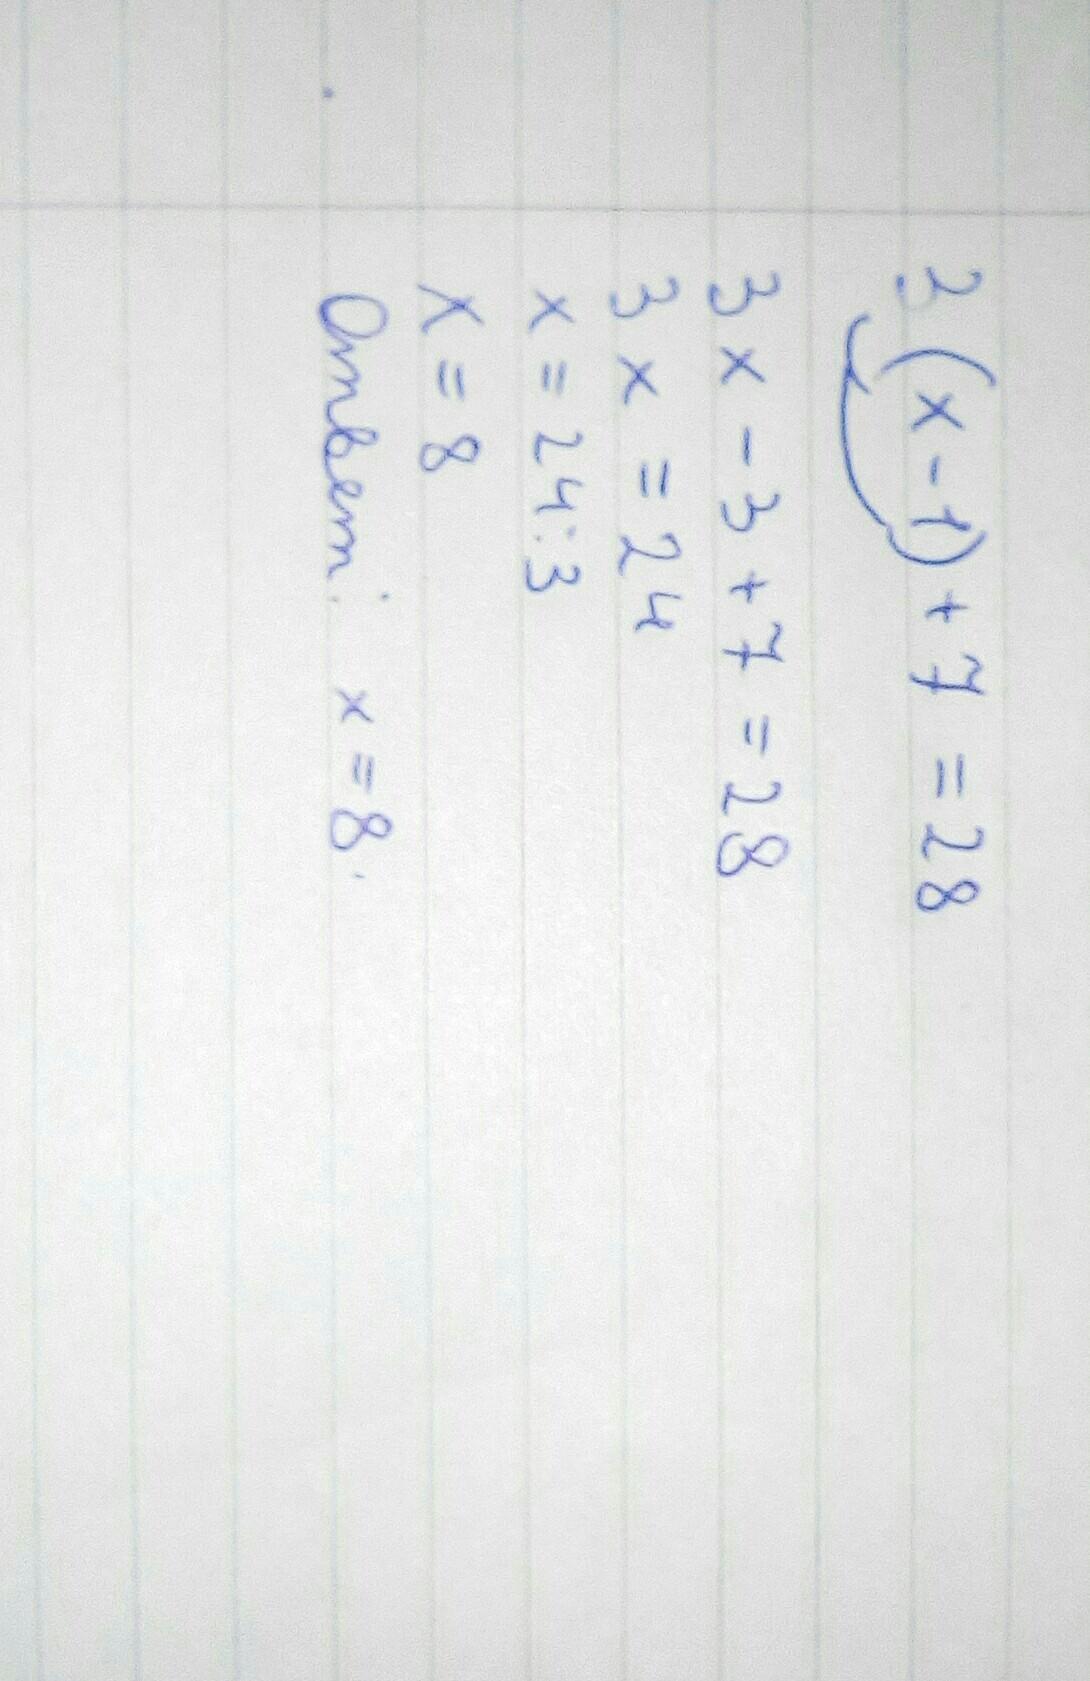 3(x-1)+7=28
3x-3+7=28
3x=24
x=24:3
x=8
Ответ: x=8.